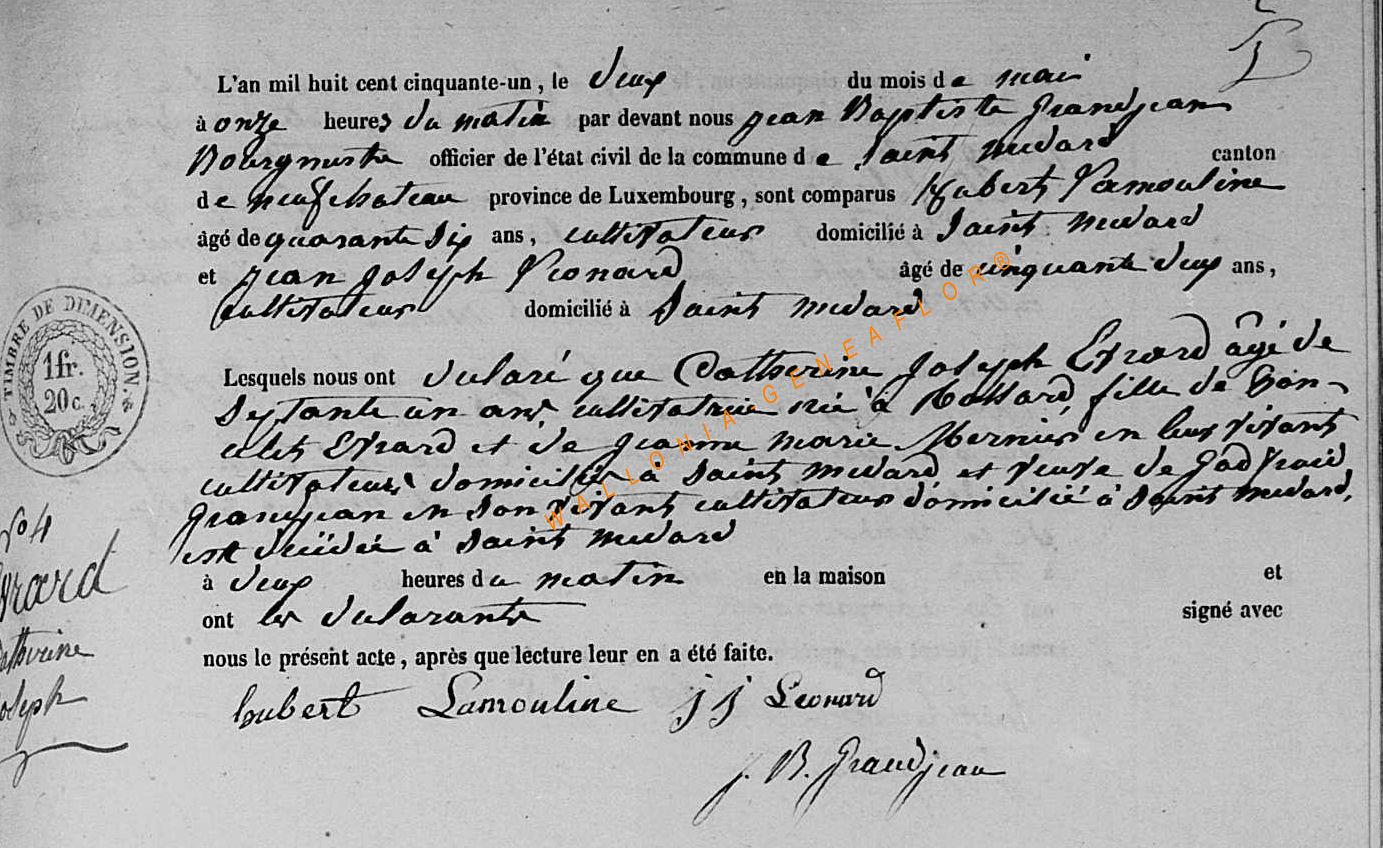 L'an mil huit cent cinquante-un, le deux du mois de mai
à onze heures du matin par devant nous Jean Baptiste Grandjean
Bourgmestre officier de l'état civil de la commune de Saint médard canton
de neufchateau province de Luxembourg, sont comparus Hubert Lamouline
âgé de quarante six ans, cultivateur domicilié à Saint médard
et Jean Joseph Léonard âgé de cinquante deux ans,
Cultivateur domicilié à Saint médard
Lesquels nous ont déclaré que Catherine Joseph Evrard âgé de
Septante un ans cultivatrice née à fille de
Evrard et de Jeanne marie Mernier en leur vivant
cultivateurs domiciliés à Saint médard et veuve de Godfroid
Grandjean en son vivant cultivateur domicilié à Saint médard,
est décédée à Saint médard
à deux heures du matin en la maison et
ont les déclarants signé avec
nous le présent acte, après que lecture leur en a été faite.
hubert Lamouline j j Leonard
J. B. Grandjean
TIMBRE DE DIMENSION
1fr.
20c.
No 4
Evrard
Catherine
Joseph
WALLONIA GENEAFLOR®